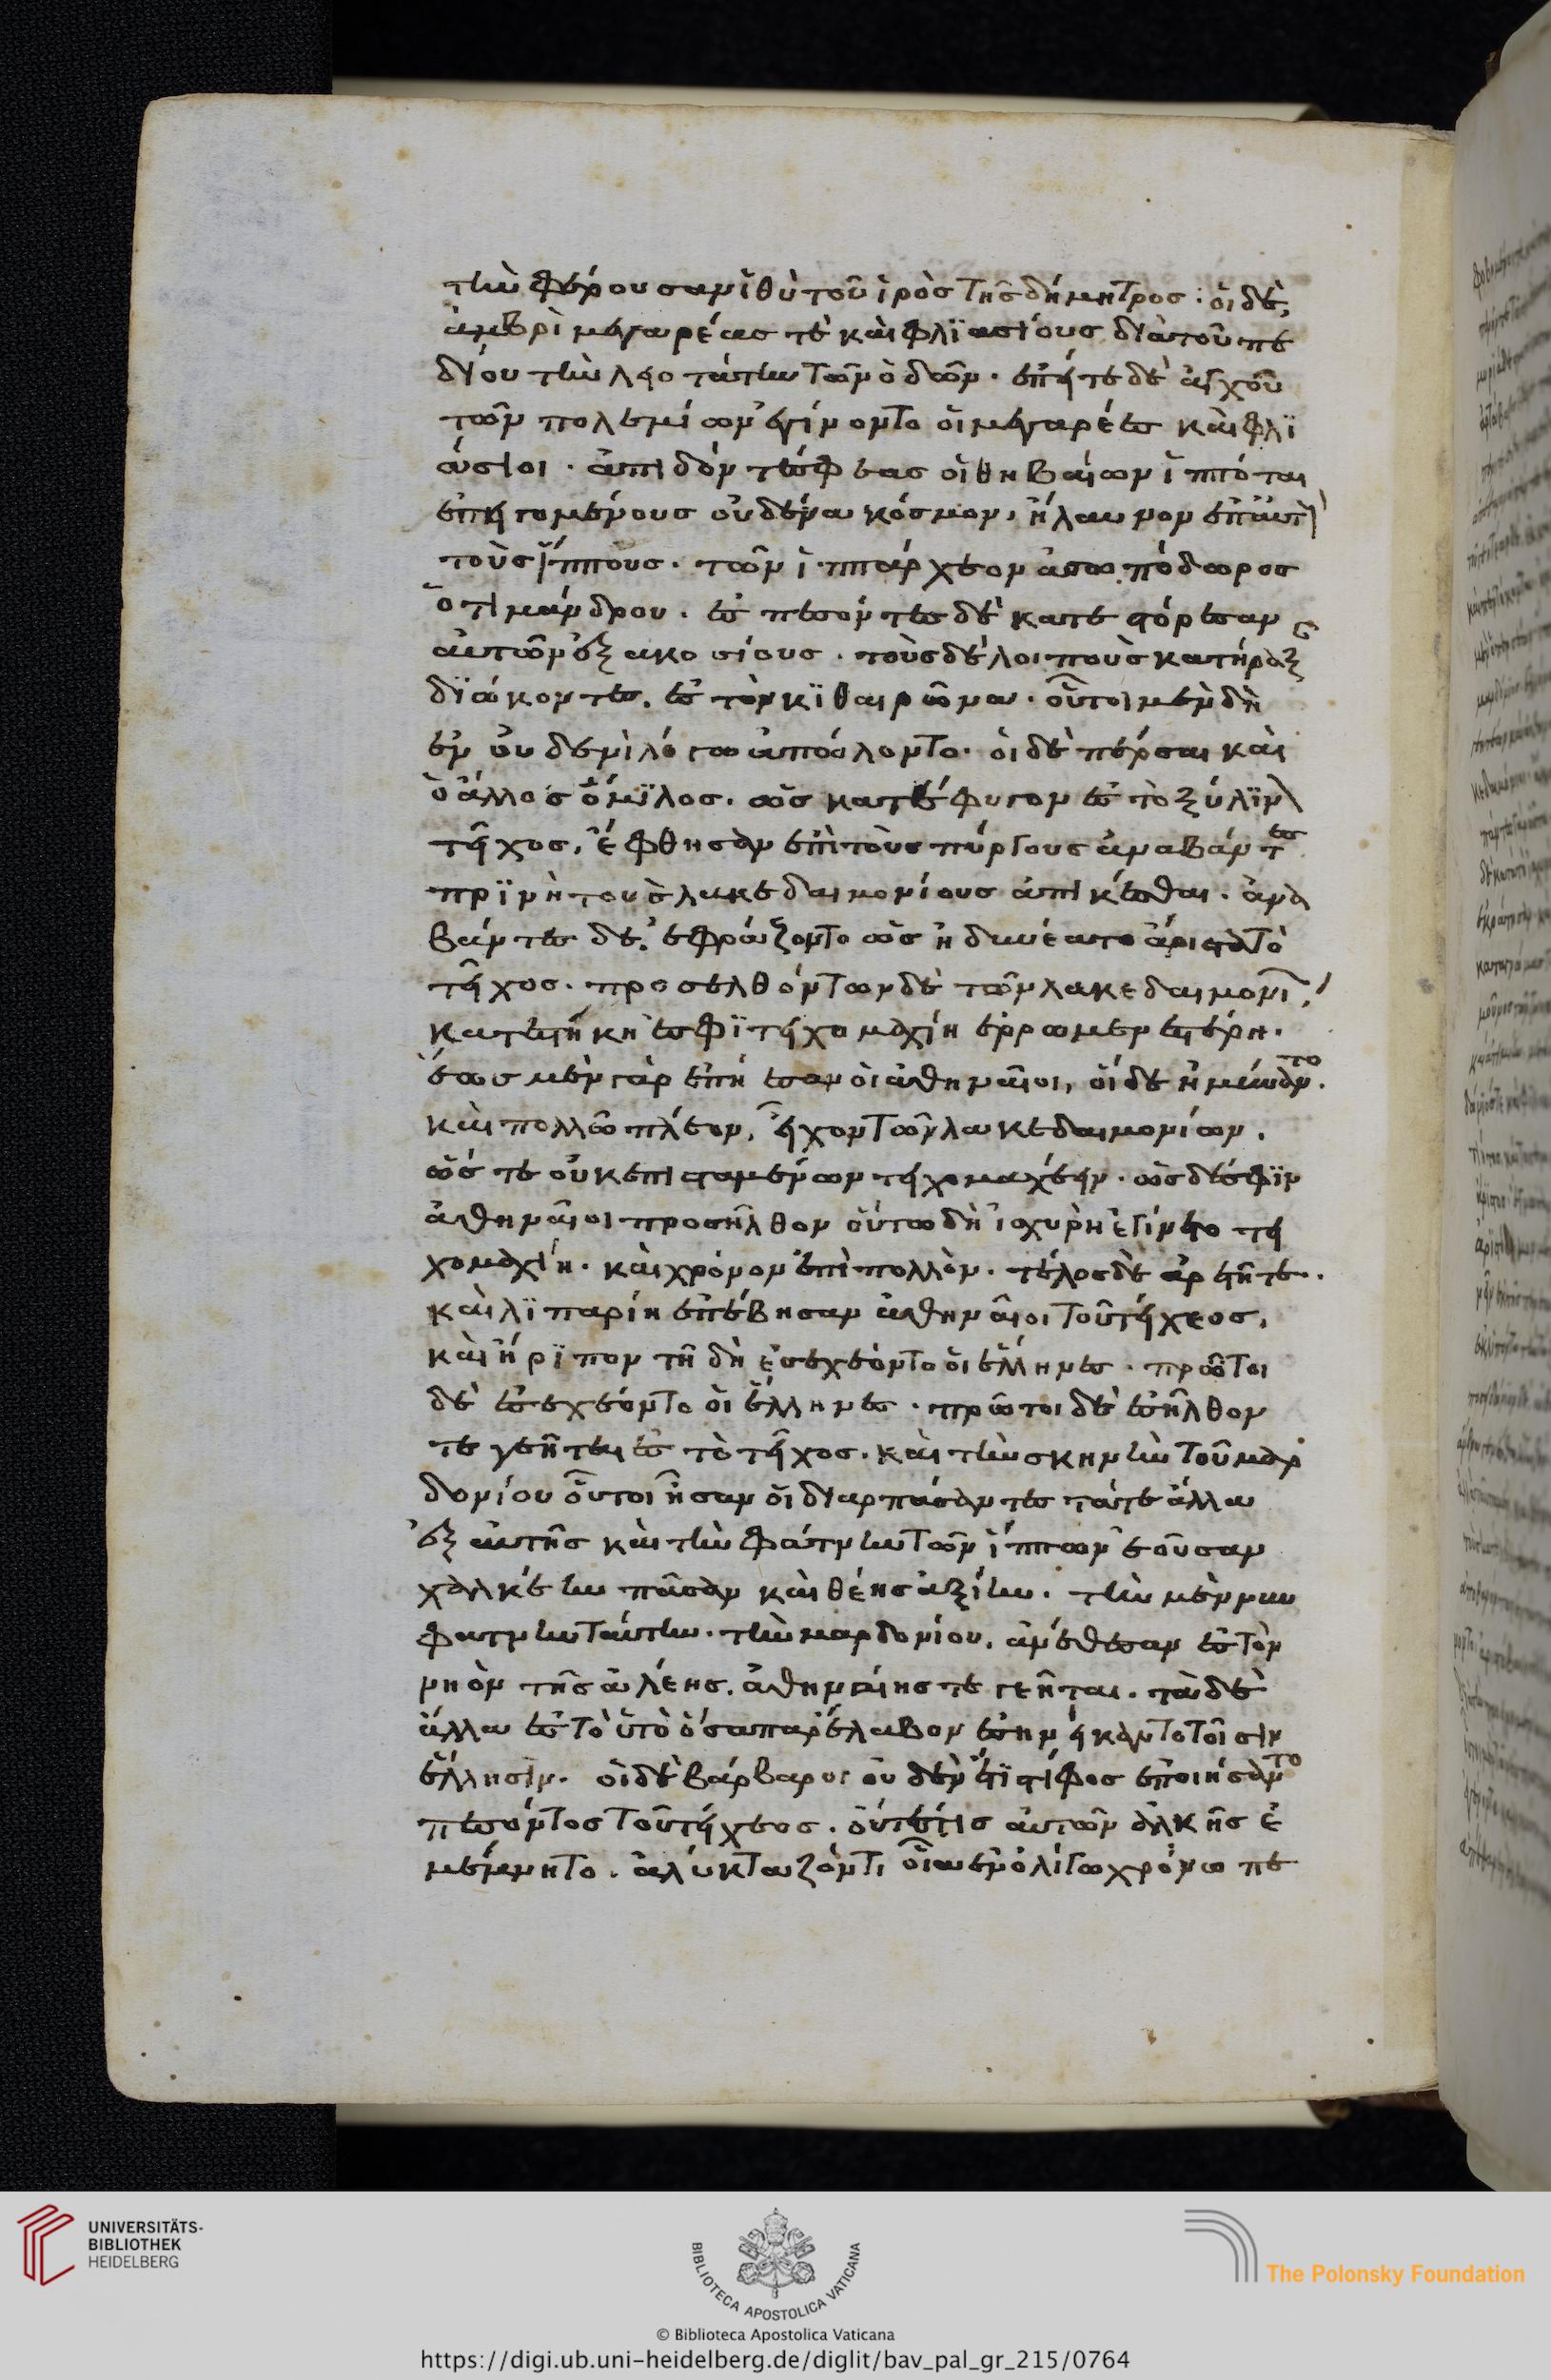 τὴν φέρουσαν ἰθὺ τοῦ ἱροῦ τῆς δήμητρος· οἱ δὲ,
ἀμφὶ μεγαρέας τὲ καὶ φλϊασίους διὰ τοῦ πε
δίου τὴν λειοτάτην τῶν ὁδῶν· ἐπεί τε δὲ ἀγχοῦ
τῶν πολεμίων ἐγίνοντο οἱ μεγαρέες καὶ φλϊ
άσιοι· ἀπιδόντές φεας οἱ θηβαίων ἱππόται
ἐπειγομένους οὐδένα κόσμον, ἤλαυνον ἐπ' αὐτ
τοὺς ἵππους· τῶν ἱππάρχεον ἀσωπόδωρος
ὁ τιμάνδρου· ἐσπεσόντες δὲ κατεστόρεσαν
αὐτῶν ἑξακοσίους· τοὺς δὲ λοιποὺς κατήραξ
δϊώκοντες, ἐς τὸν κϊθαιρῶνα· οὗτοι μὲν δὴ
ἐν οὐδενὶ λόγω ἀπόλοντο· οἱ δὲ πέρσαι καὶ
ὁ ἄλλος ὅμϊλος· ὡς κατέφυγον ἐς τὸ ξύλϊν
τεῖχος, ἔφθησαν ἐπὶ τοὺς πύργους ἀναβάντες
πρϊν ἢ τοὺς λακεδαιμονίους ἀπικέσθαι· ἀνα
βάντες δὲ, ἐφράξοντο ὡς ἠδυνέατο ἄριστα τὸ
τεῖχος· προσελθόντων δὲ τῶν λακεδαιμονί
κατεστήκη σφϊ τειχομαχίη ἐρρωμενεστέρη·
ἕως μὲν γὰρ ἐπῆεσαν οἱ ἀθηναῖοι, οἵδε ἠμύναντο·
καὶ πολλῶ πλέον, εἶχον τῶν λακεδαιμονίων,
ὥς τε οὐκ ἐπισταμένων τειχομαχέειν· ὡς δέ σφϊν
ἀθηναῖοι προσῆλθον οὕτω δὴ ἰσχυρὴ ἐγίνετο τει
χομαχίη· καὶ χρόνον ἐπὶ πολλὸν· τέλος δὲ ἀρετῆ τε·
καὶ λϊπαρίη ἐπέβησαν ἀθηναῖοι τοῦ τείχεος,
καὶ ἤρϊπον τῆ δὴ ἐσεχέοντο οἱ ἕλληνες· πρῶτοι
δὲ ἐσεχέοντο οἱ ἕλληνες· πρῶτοι δὲ ἐσῆλθον
τεγεῆται ἐς τὸ τεῖχος· καὶ τὴν σκηνὴν τοῦ μαρ
δονίου οὗτοι ἦσαν οἱ διαρπάσαντες τάτε ἄλλα
ἐξ αὐτῆς καὶ τὴν φάτνην τῶν ἵππων ἐοῦσαν
χαλκέην πᾶσαν καὶ θέης ἀξίην· τὴν μέν νυν
φατνην ταύτην· τὴν μαρδονίου, ἀνέθεσαν ἐς τὸν
νηὸν τῆς ἀλέης, ἀθηναίης τεγεῆται· τὰ δὲ
ἄλλα ἐς τὸ ὑτὸ ὅσα παρέλαβον ἐσηνείκαντο τοῖσιν
ἕλλησιν· οἱ δὲ βάρβαροι οὐδὲν ἔτϊ στῖφος ἐποιήσαντο
πεσόντος τοῦ τείχεος· οὔτέ τις αὐτῶν ἀλκῆς ἐ
μέμνητο· ἀλύκταζόντι οἷα ἐν ὀλίγω χρόνω πε
UNIVERSITÄTS-
BIBLIOTHEK
HEIDELBERG
BIBLIOTECA APOSTOLICA VATICANA
The Polonsky Foundation
© Biblioteca Apostolica Vaticana
https://digi.ub.uni-heidelberg.de/diglit/bav_pal_gr_215/0764